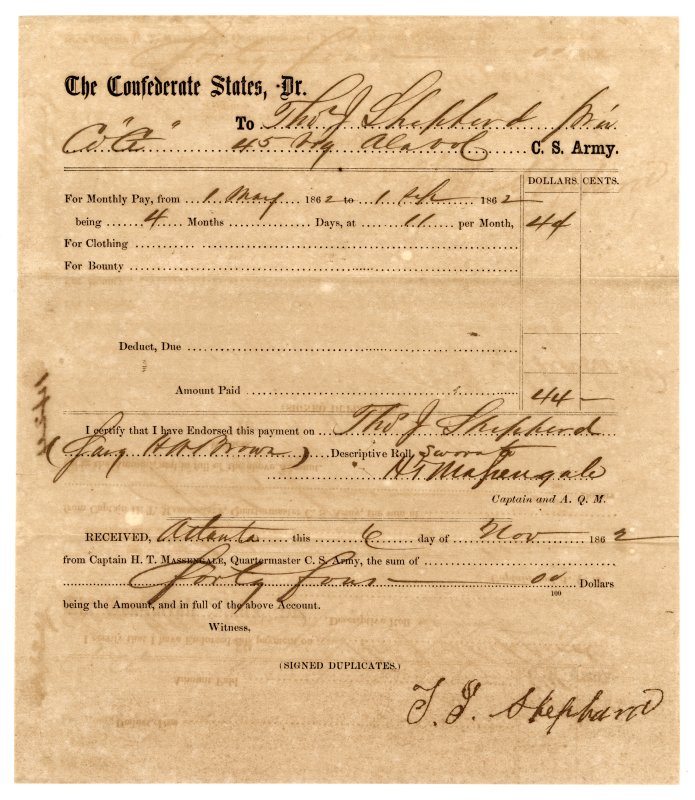 The Confederate States, Dr.
To Thos J Shepherd
Co "A" 45 Reg Ala Vol C. S. Army.
DOLLARS. CENTS.
For Monthly Pay, from 1 May 1862 to 1 Sept 1862
being 4 Months Days, at 11 per Month, 44
For Clothing
For Bounty
Deduct, Due
Amount Paid 44 —
I certify that I have Endorsed this payment on Thos J Shepherd
H W Brown) Descriptive Roll
H T Massengale
Captain and A. Q. M.
RECEIVED, Atlanta this 6 day of Nov 1862
from Captain H. T. MASSENGALE, Quartermaster C. S. Army, the sum of
Forty four — 00/100 Dollars
being the Amount, and in full of the above Account.
Witness,
(SIGNED DUPLICATES.)
T. J. Shepherd